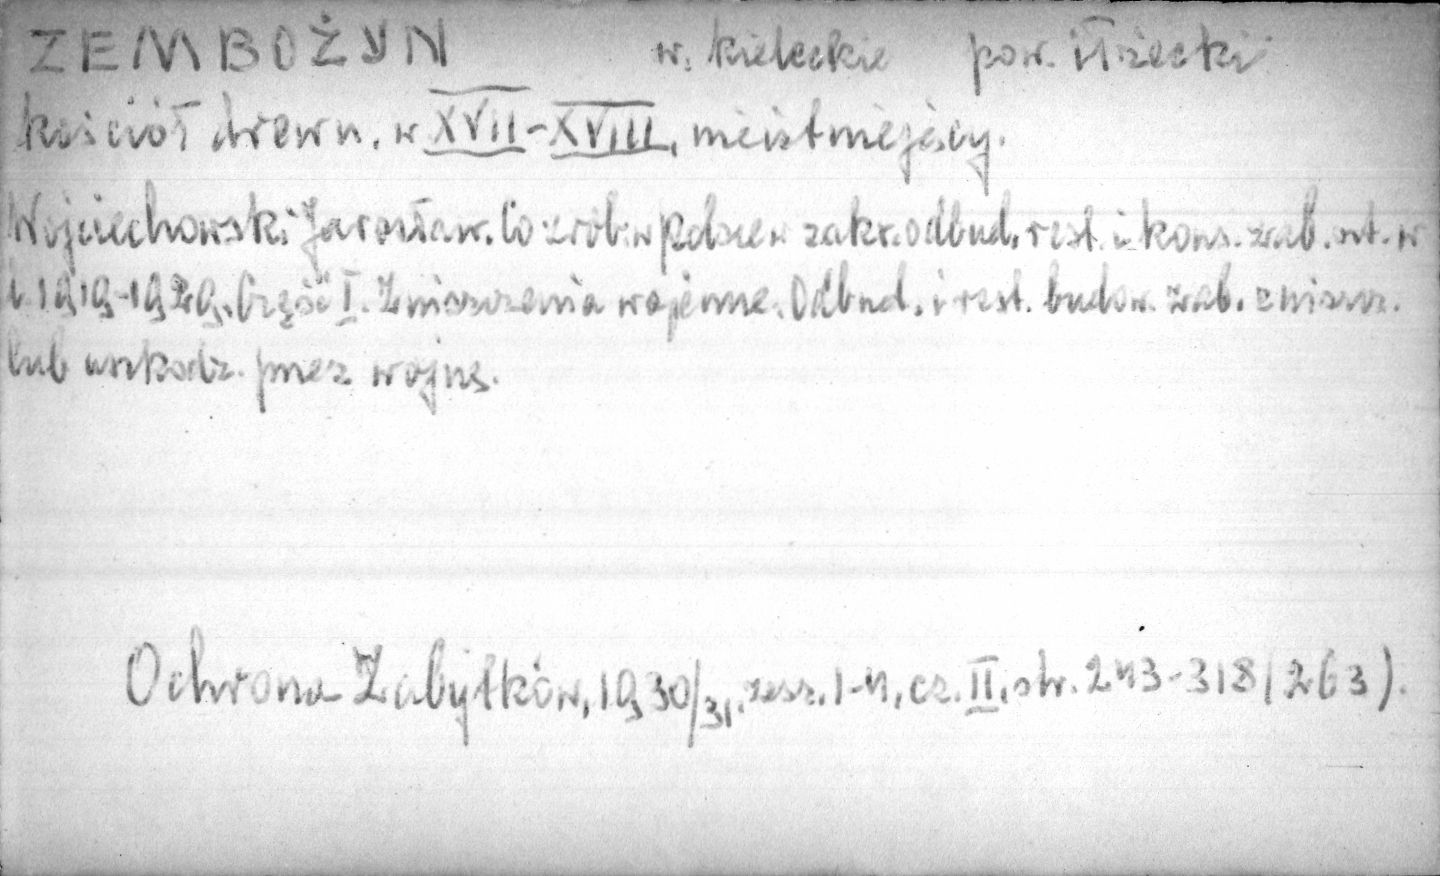 ZEMBOŻYN w. kieleckie pow. iłżecki
kościół drewn. w XVII-XVIII, nieistniejący.
Wojciechowski Jarosław. Co zrob. w Polsce w zakr. odbud. rest. i kons. zab. szt. w
l. 1919-1929. Część I. Zniszczenia wojenne. Odbud. i rest. budow. zab. zniszcz.
lub uszkodz. przez wojnę.
Ochrona Zabytków, 1930/31, zesz. 1-4, cz. II, str. 243-318 (263).